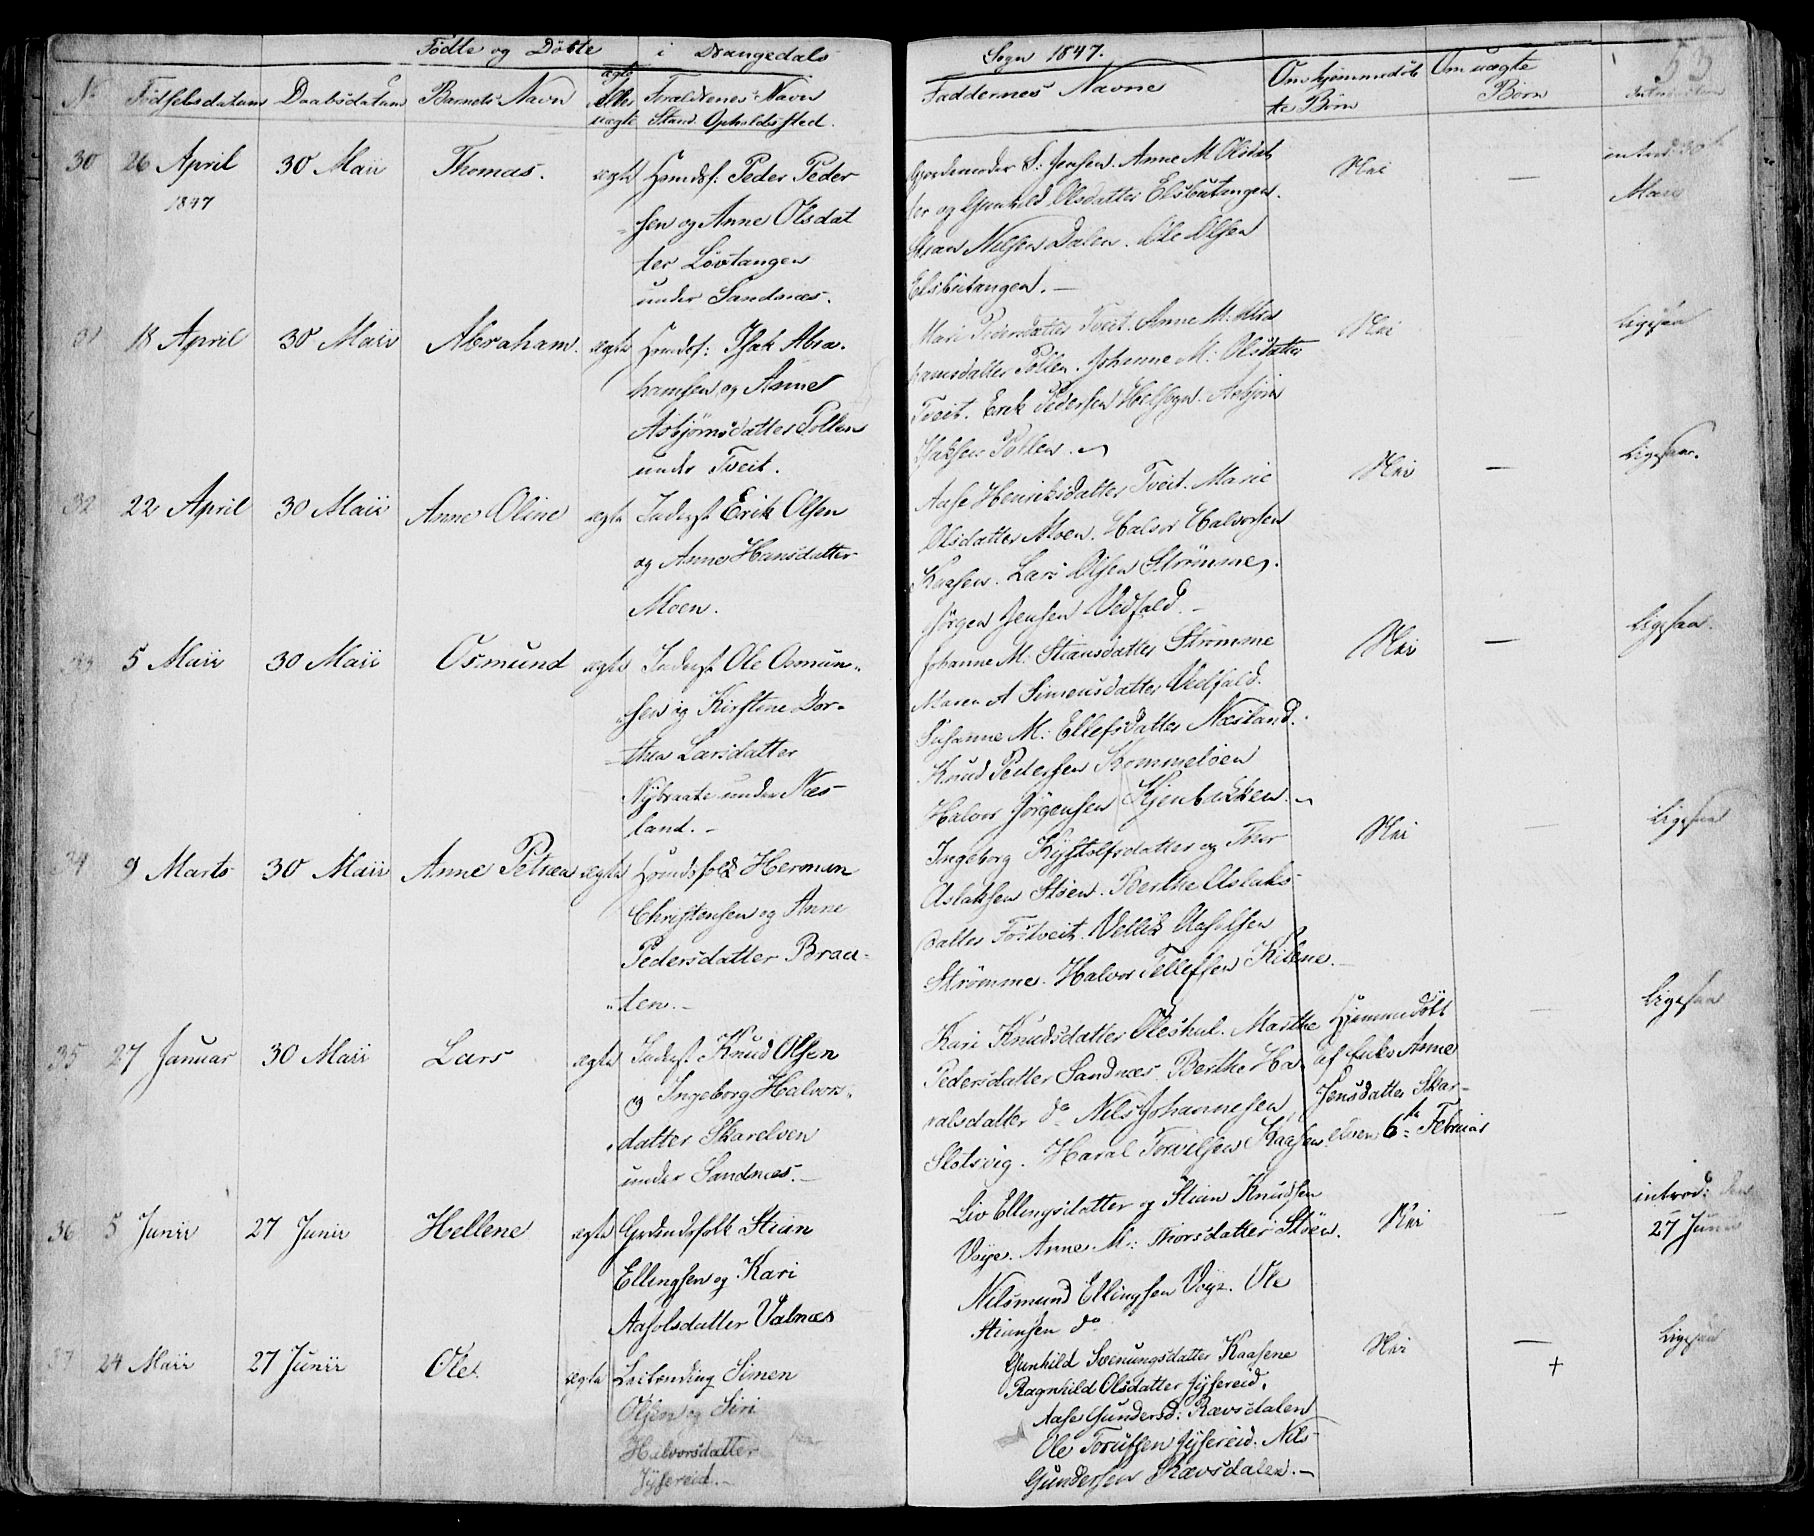 Fødte og Døbte i Drangedals
Sogn 1847.
53
No Fødselsdatum Daabsdatum Barnets Navn ægte eller uægte Foreldrenes Navn Stand. Opholdssted.
Faddernes Navne Om hjemmedøbte Børn Om uægte Børn Introduction
30 26 April 30 Maii Thomas. ægte Huusf: Peder Peder
1847
sen og Anne Olsdat
ter Løvtangen
under Sandnæs.
Gaardemoder S: Jensen. Anne M. Olsdat
ter og Gunhild Olsdatter Elsbutangen.
Stian Nilsen Dalen. Ole Olsen
Elsbutangen.
Nei — introd: 30te
Maii
31 18 April 30 Maii Abraham. ægte Huusf: Isak Abra-
hamsen og Anne
Asbjørnsdatter Pollen
under Tveit.
Mari Pedersdatter Tveit. Anne M: Abra
hamsdatter Pollen. Johanne M: Olsdatter
Tveit. Erik Pedersen Helsogn. Asbjørn
Isaksen Pollen.
Nei Ligesaa
32 22 April 30 Maii Anne Oline ægte Inderst Erik Olsen
og Anne Hansdatter
Moen.
Aase Henriksdatter Tveit. Marie
Olsdatter Moen. Halvor Halvorsen
Kaasen. Lars Olsen Strømme.
Jørgen Jensen Vedfald.
Nei — Ligesaa.
33 5 Maii 30 Maii Osmund ægte Inderst Ole Osmun-
sen og Kirstine Dor-
thea Larsdatter
Nybraate under Næs-
land.
Johanne M: Stiansdatter Strømme
Maren A Simonsdatter Vedfald.
Susanne M: Ellefsdatter Næsland.
Knud Pedersen Kommeloen
Halvor Jørgensen Kjenbakken.
Nei — Ligesaa.
34 9 Marts 30 Maii Anne Petrea ægte Huusfolk Herman
Christensen og Anne
Pedersdatter Braa-
ten.
Ingeborg Kjøstolfsdatter og Thor
Aslaksen Støen. Berthe Aslaks-
datter Fostveit. Nellik Aasolsen
Strømme. Halvor Tellefsen Kilene.
Nei — Ligesaa
35 27 Januar 30 Maii Lars ægte Inderst Knud Olsen
og Ingeborg Halvors-
datter Skarelven
under Sandnæs.
Kari Knudsdatter Oleshul. Marthe
Pedersdatter Sandnæs. Berthe Ha-
ralsdatter do. Nils Johannesen
Slotsvig. Haral Torvilsen Kaasen.
Hjemmedøbt
af Enke Anne
Jensdatter Skar-
elven 6te Februar
— Ligesaa
36 5 Junii 27 Junii Hellene ægte Grdmdsfolk Stian
Ellingsen og Kari
Aasolsdatter Valnæs
Liv Ellingsdatter og Stian Knudsen
Voje. Anne M: Thorsdatter Støen.
Nilsmund Ellingsen Voje. Ole
Stiansen do
Nei — introd: den
27 Junii
37 24 Maii 27 Junii Ole. ægte Leilænding Simen
Olsen og Siri
Halvorsdatter
Jysereid.
Gunhild Svenungsdatter Kaasene
Ragnhild Olsdatter Jysereid.
Aase Gundersd: Rævsdalen
Ole Torufsen Jysereid. Nils
Gundersen Rævsdalen.
Nei — + Ligesaa